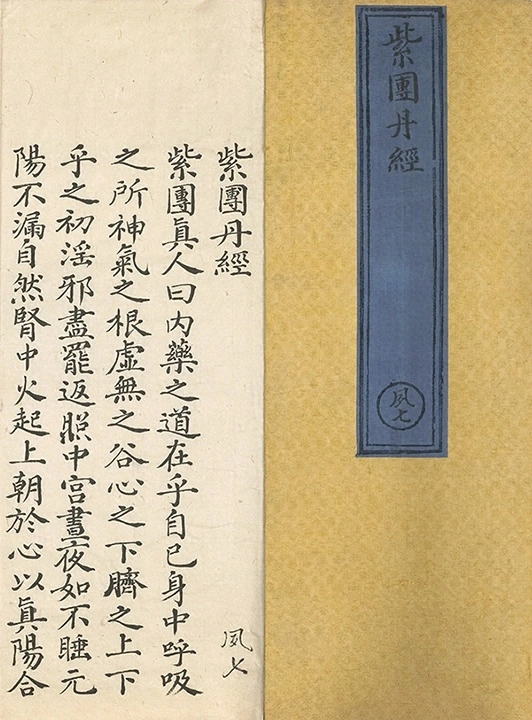 紫團丹經
夙七
紫團丹經
夙七
紫團真人曰內藥之道在乎自己身中呼吸
之所神氣之根虛無之谷心之下臍之上下
乎之初淫邪盡罷返照中宮晝夜如不睡元
陽不漏自然腎中火起上朝於心以真陽合